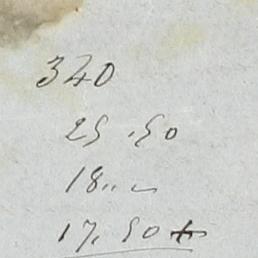 340
25.50
18..
17.50 +